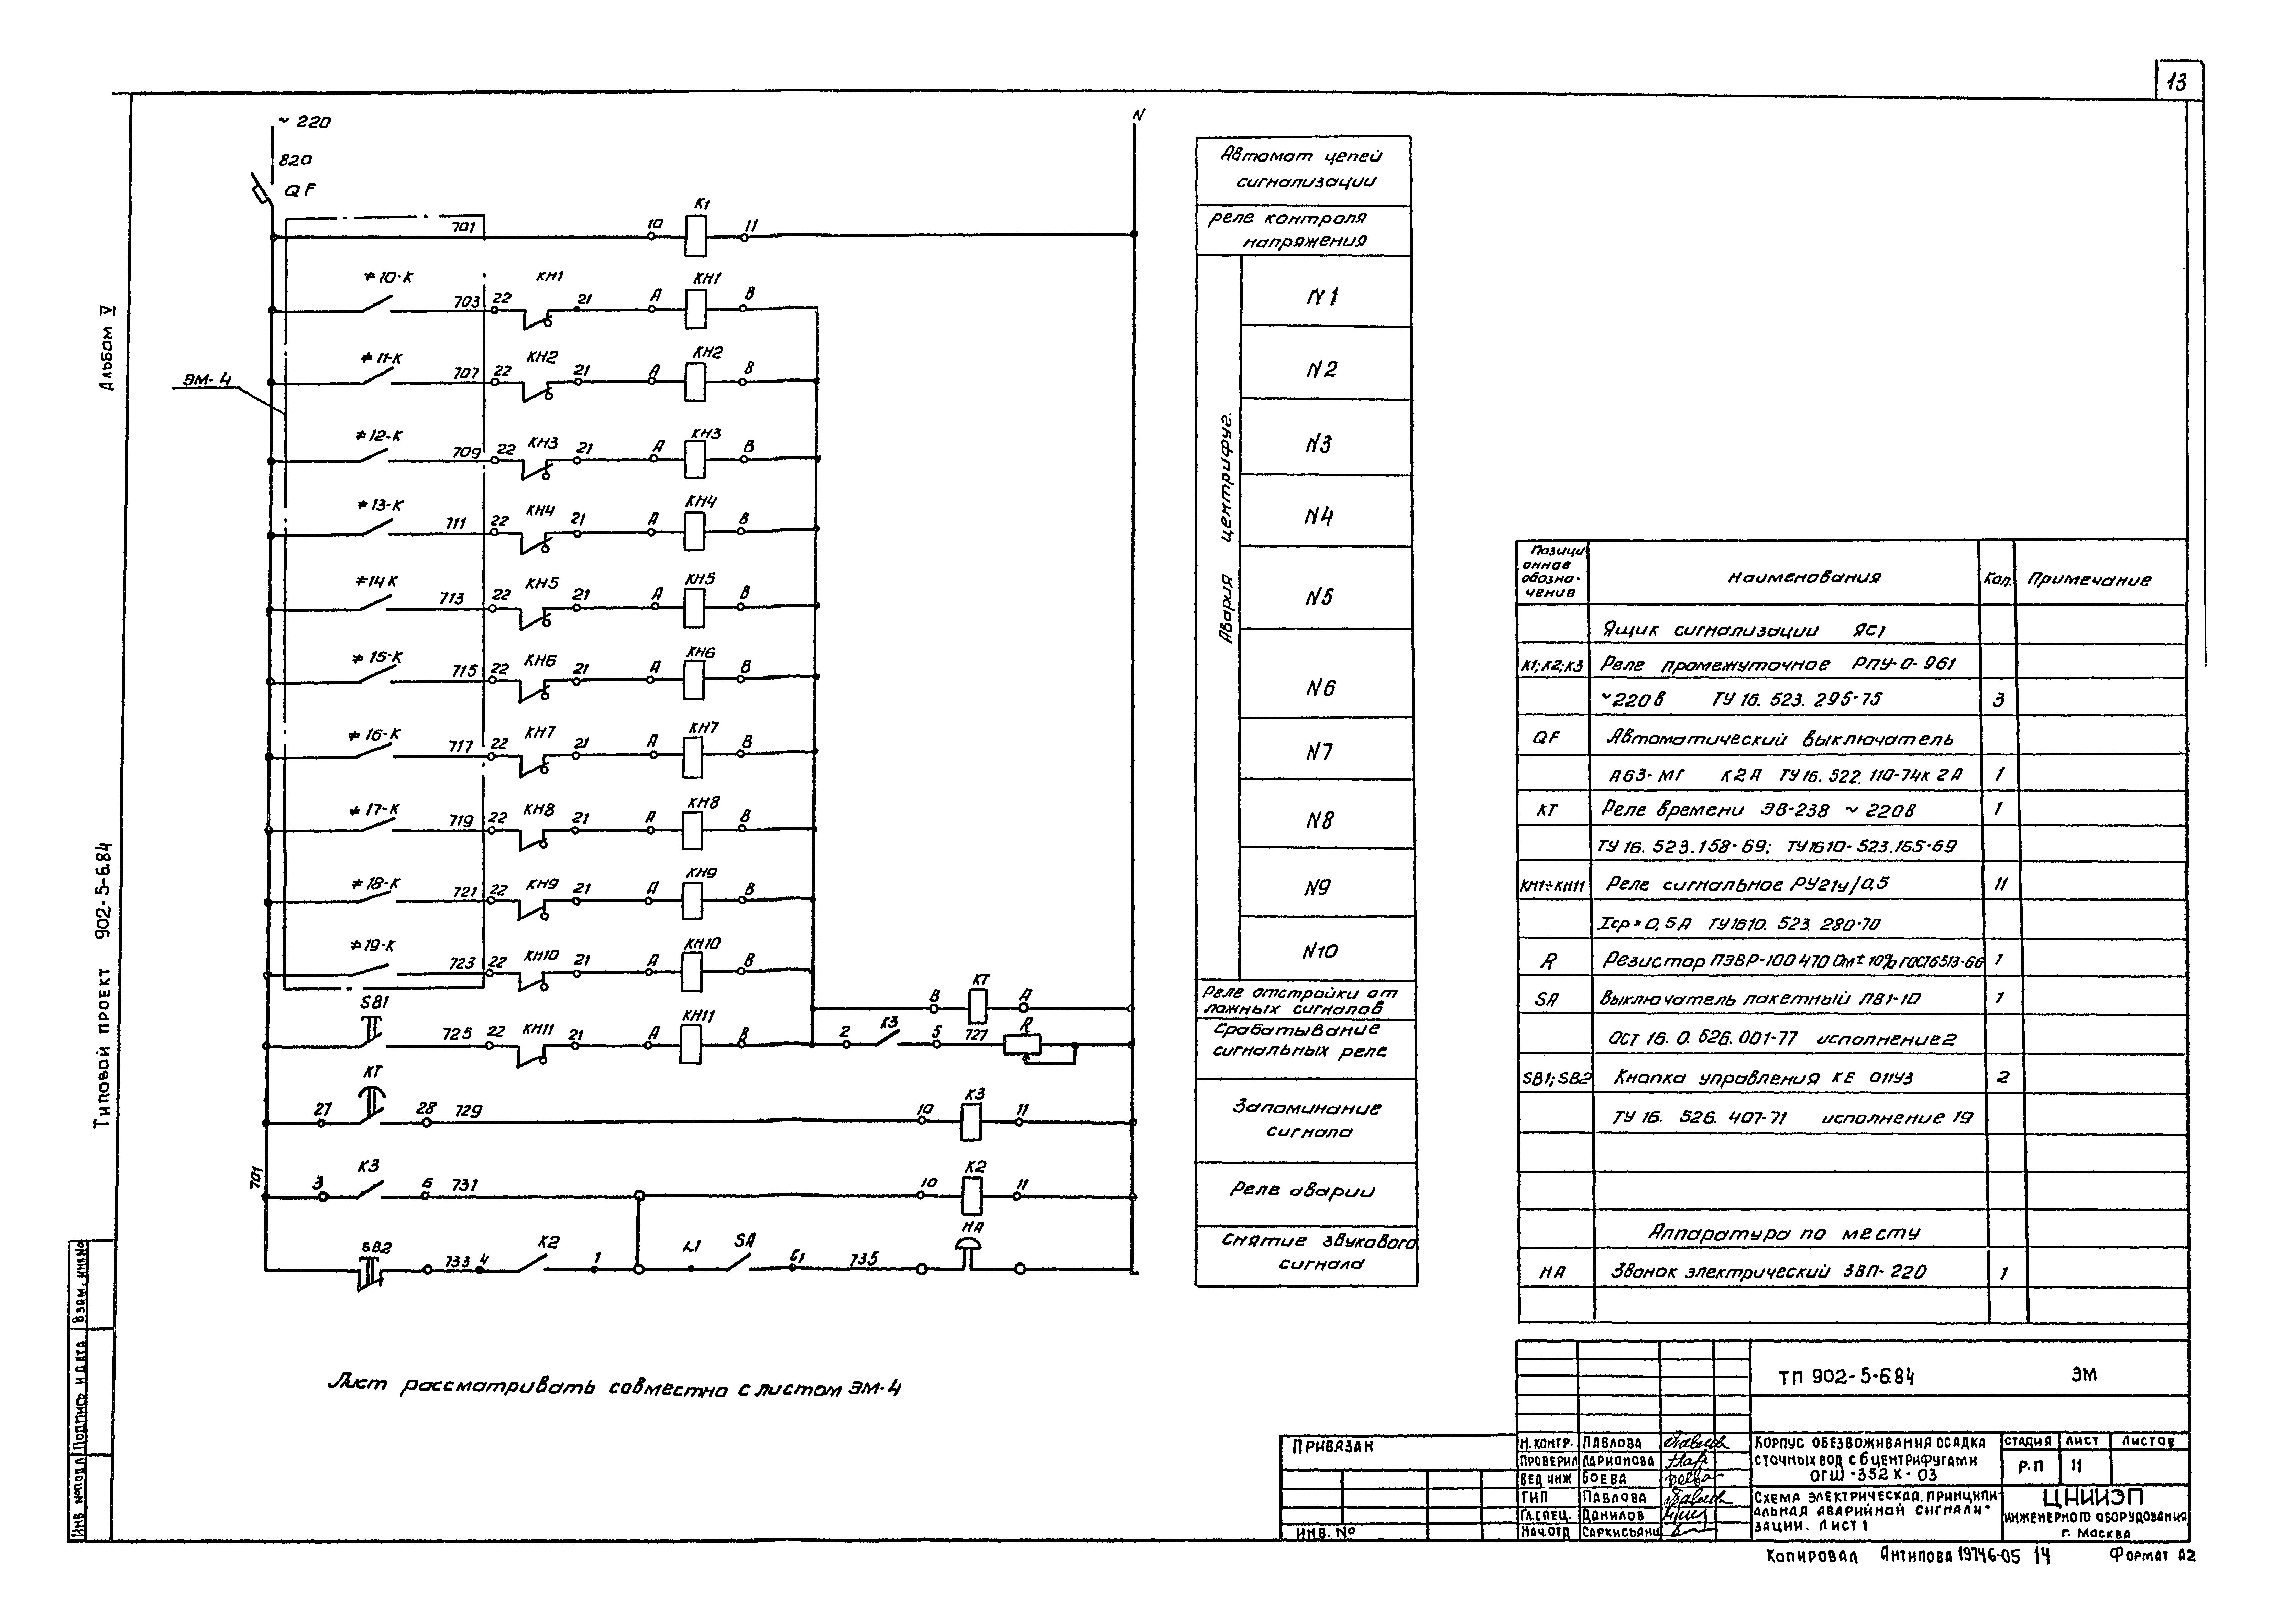 13
~ 220
N
820
QF
701 10 К1 11
≠10-К 703 22 КН1 21 А КН1 В
≠11-К 707 22 КН2 21 А КН2 В
ЭМ-4
≠12-К 709 22 КН3 21 А КН3 В
≠13-К 711 22 КН4 21 А КН4 В
≠14К 713 22 КН5 21 А КН5 В
≠15-К 715 22 КН6 21 А КН6 В
≠16-К 717 22 КН7 21 А КН7 В
≠17-К 719 22 КН8 21 А КН8 В
≠18-К 721 22 КН9 21 А КН9 В
≠19-К 723 22 КН10 21 А КН10 В
В КТ А
SB1 725 22 КН11 21 А КН11 В 2 К3 5 727 R
27 КТ 28 729 10 К3 11
701
3 К3 6 731 10 К2 11
SB2 733 4 К2 1 Л1 SA С1 735 НА
Лист рассматривать совместно с листом ЭМ-4
Автомат цепей
сигнализации
реле контроля
напряжения
Авария центрифуг.
N1
N2
N3
N4
N5
N6
N7
N8
N9
N10
Реле отстройки от
ложных сигналов
Срабатывание
сигнальных реле
Запоминание
сигнала
Реле аварии
Снятие звукового
сигнала
Позици
онное
обозна-
чение
Наименования
Кол.
Примечание
Ящик сигнализации ЯС1
К1;К2;К3 Реле промежуточное РПУ-0-961
~220в ТУ 16.523.295-75 3
QF Автоматический выключатель
А63-МГ К2А ТУ16.522.110-74к 2А 1
КТ Реле времени ЭВ-238 ~ 220В 1
ТУ 16.523.158-69; ТУ1610-523.165-69
КН1÷КН11 Реле сигнальное РУ21у/0,5 11
Iср=0,5А ТУ1610.523.280-70
R Резистор ПЭВР-100 470 Ом±10% ГОСТ6513-66 1
SA Выключатель пакетный ПВ1-10 1
ОСТ 16.0.526.001-77 исполнение2
SB1;SB2 Кнопка управления КЕ 011У3 2
ТУ 16.526.407-71 исполнение 19
Аппаратура по месту
НА Звонок электрический ЗВП-220 1
ТП 902-5-6.84 ЭМ
ПРИВЯЗАН
ИНВ. №
Н.КОНТР. ПАВЛОВА
ПРОВЕРИЛ ЛАРИОНОВА
ВЕД ИНЖ БОЕВА
ГИП ПАВЛОВА
ГЛ.СПЕЦ. ДАНИЛОВ
НАЧ.ОТД САРКИСЬЯНЦ
КОРПУС ОБЕЗВОЖИВАНИЯ ОСАДКА
СТОЧНЫХ ВОД С 6 ЦЕНТРИФУГАМИ
ОГШ-352К-03
СХЕМА ЭЛЕКТРИЧЕСКАЯ, ПРИНЦИПИ-
АЛЬНАЯ АВАРИЙНОЙ СИГНАЛИ-
ЗАЦИИ. ЛИСТ1
СТАДИЯ ЛИСТ ЛИСТОВ
Р.П 11
ЦНИИЭП
ИНЖЕНЕРНОГО ОБОРУДОВАНИЯ
Г. МОСКВА
КОПИРОВАЛ АНТИПОВА 19746-05 14 ФОРМАТ А2
Альбом V
Типовой проект 902-5-6.84
Взам. инв.№
Подпись и дата
Инв. №подл